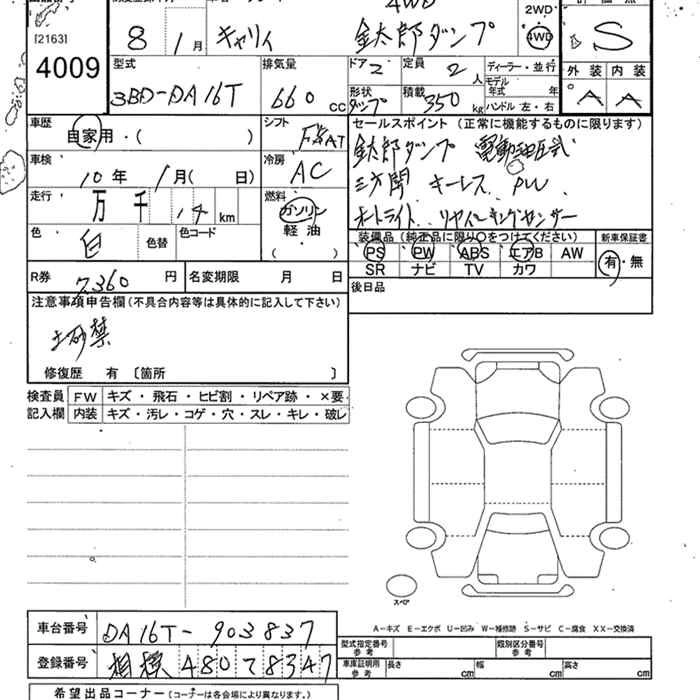 4WD
2WD
[2163]
8 1月 キャリイ 金太郎ダンプ 4WD S
4009
型式 排気量 ドア 2 定員 2人 ディーラー・並行 外装 内装
3BD-DA16T 660cc 形状 ダンプ 積載 350kg モデル年式 年 A A
ハンドル 左・右
車歴 自家用・( ) シフト セールスポイント (正常に機能するものに限ります)
車検 10年 1月( 日) 冷房 AC 金太郎ダンプ 電動油圧式
三方開 キーレス PW
走行 万 千 14 km 燃料 ガソリン 軽油 ( ) オートライト リヤパーキングセンサー
色 白 色替 色コード 装備品 (純正品に限り○をつけてください) 新車保証書
PS PW ABS エアB AW 有・無
SR ナビ TV カワ
R券 7,360円 名変期限 月 日 後日品
注意事項申告欄 (不具合内容等は具体的に記入して下さい)
土砂禁
修復歴 有 〔箇所 〕
検査員 FW キズ・飛石・ヒビ割・リペア跡・×要
記入欄 内装 キズ・汚レ・コゲ・穴・スレ・キレ・破レ
スペア
A-キズ E-エクボ U-凹み W-補修跡 S-サビ C-腐食 XX-交換済
車台番号 DA16T-903837 型式指定番号 参考 類別区分番号 参考
登録番号 相模 480 て 8347 車庫証明用 参考 長さ cm 幅 cm 高さ cm
希望出品コーナー (コーナーは各会場により異なります。)